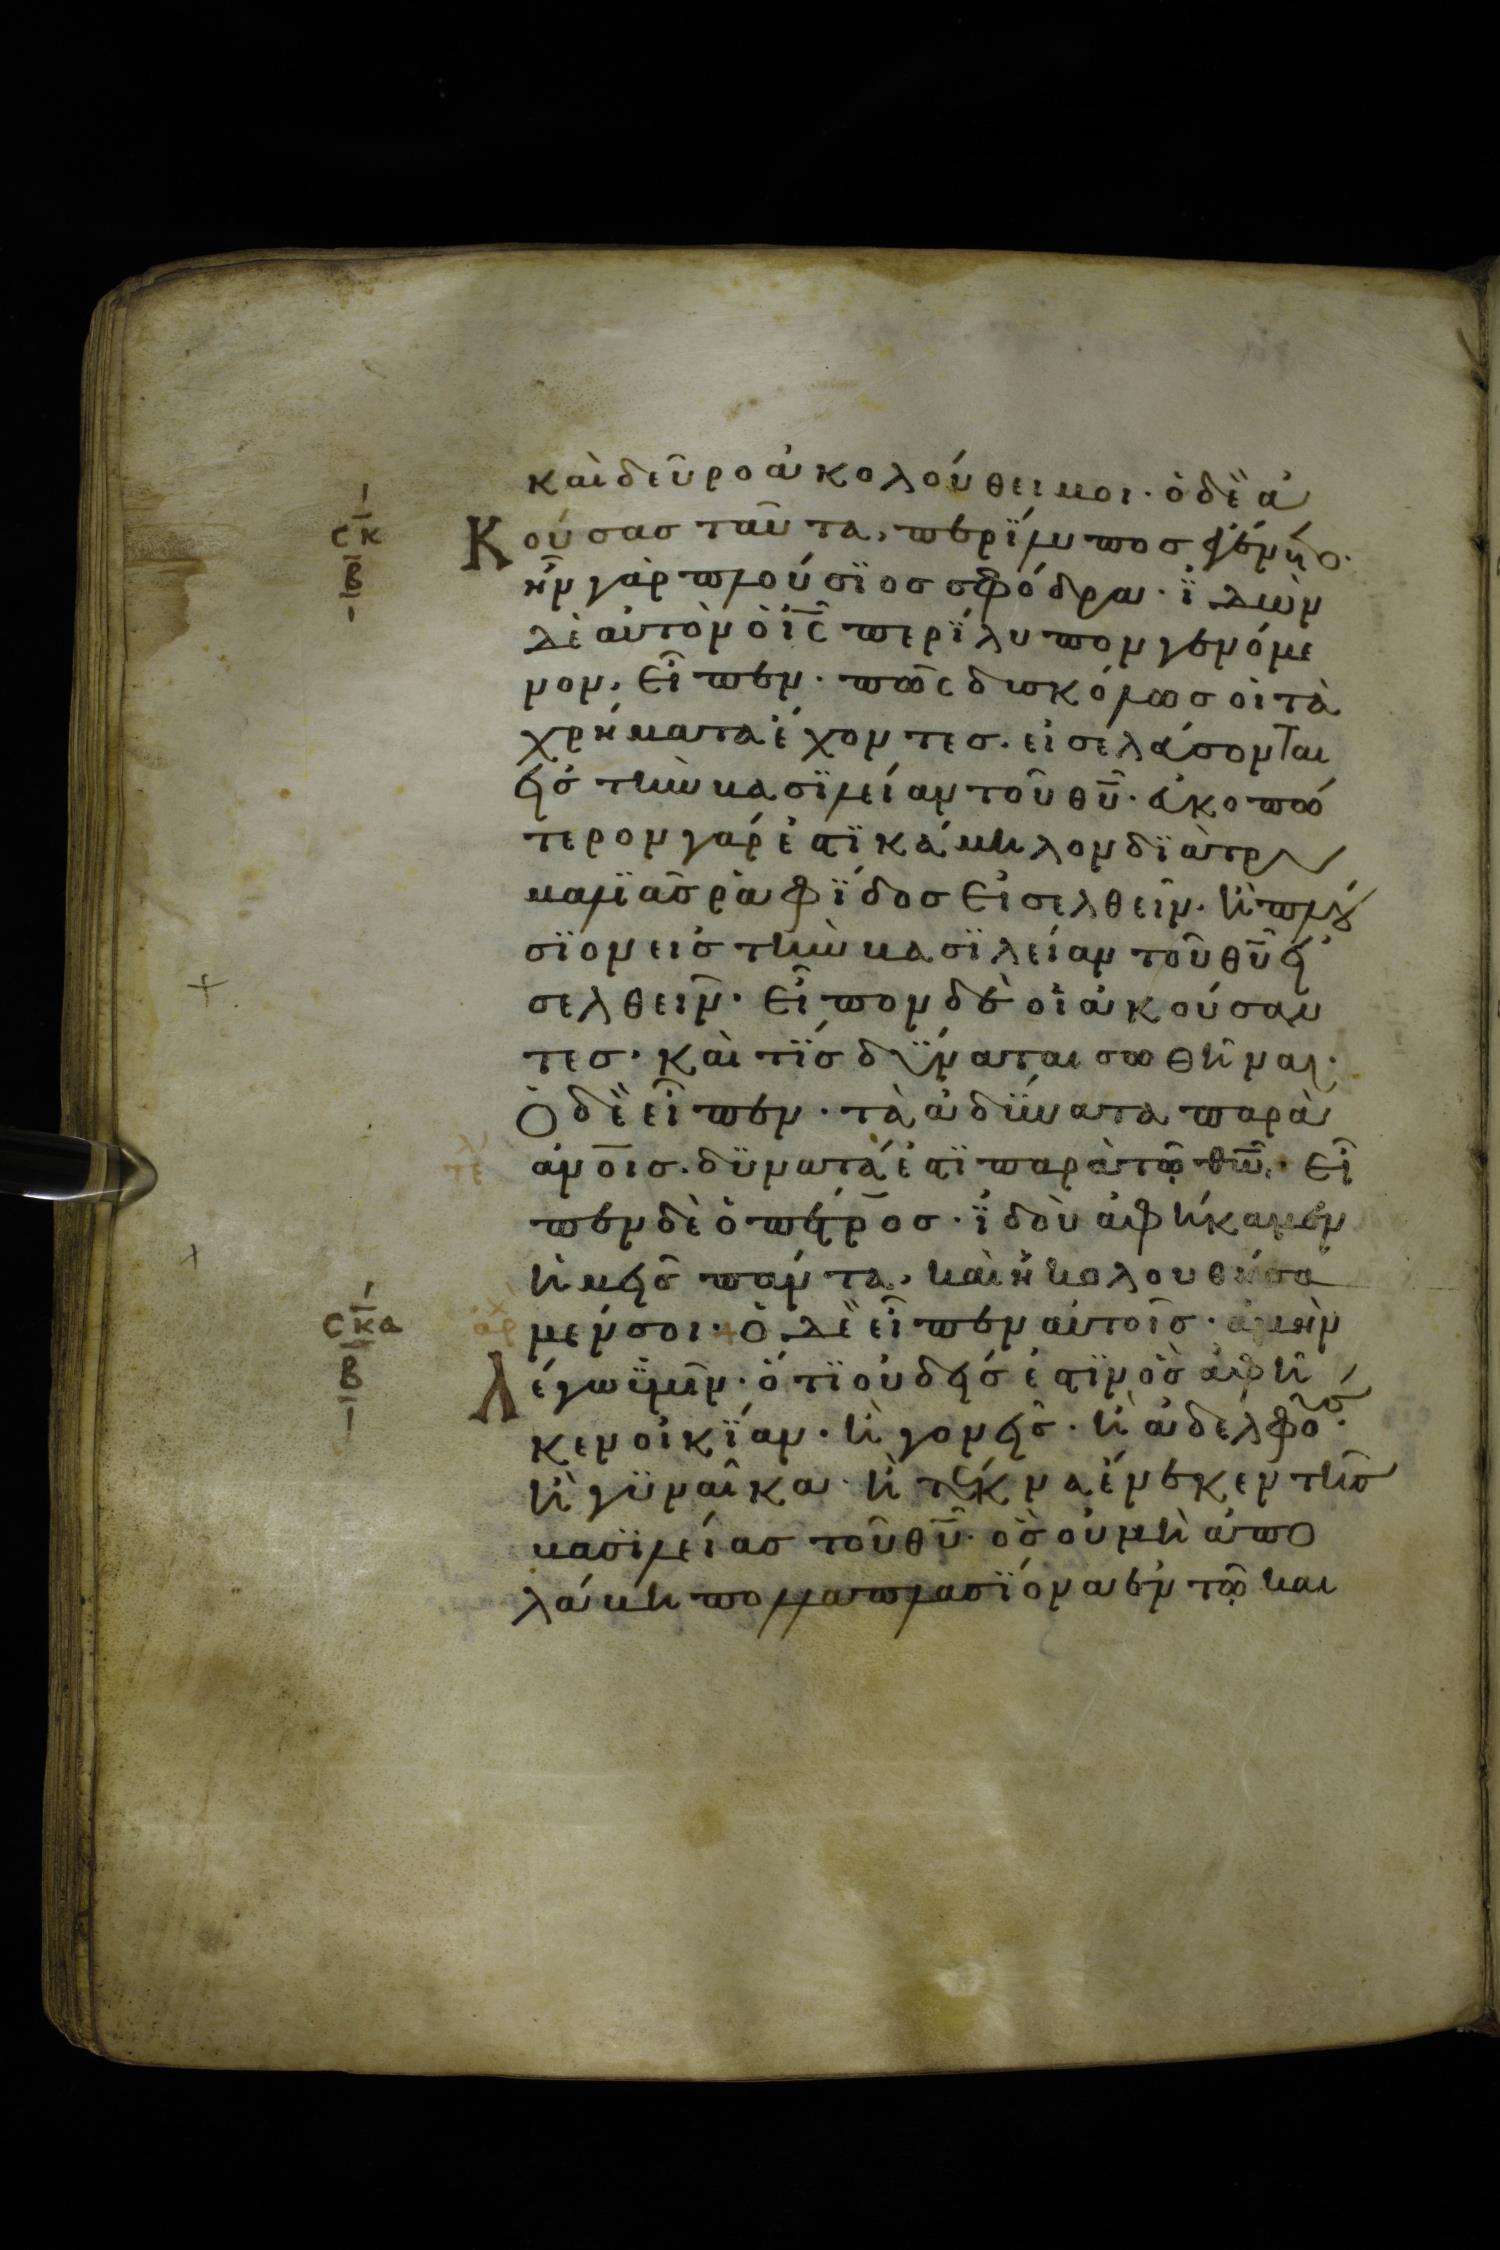 καὶ δεῦρο ἀκολούθει μοι· ὁ δὲ ἀ
σ̅κ̅
β̅
Κούσας ταῦτα, περΐλυπος
ἦν γὰρ πλούσϊος σφόδρα· ἰδὼν
δὲ αὐτὸν ὁ ι̅ς̅ περΐλυπον γενόμε
νον, εἶπεν· πῶς δισκόλως οἱ τὰ
χρήματα ἔχοντες· εἰσελεύσονται
εἰς τὴν βασϊλείαν τοῦ θ̅υ̅· εὐκοπώ
τερον γάρ ἐστϊ κάμηλον δϊὰ τρυ
μαλϊᾶς ῥαφΐδος εἰσελθεῖν· ἢ πλού
σϊον εἰς τὴν βασϊλείαν τοῦ θ̅υ̅ εἰ
σελθεῖν· εἶπον δὲ οἱ ἀκούσαν
τες· καὶ τίς δύναται σωθῆναι·
Ὁ δὲ εἶπεν· τὰ ἀδύνατα παρὰ
τελ
ἀν̅ο̅ις· δϋνατά ἐστϊ παρὰ τῷ θ̅ω̅· εἶ
πεν δὲ ὁ πέτρος· ἰδοὺ ἀφήκαμεν
ἡμεῖς πάντα, καὶ ἠκολουθήσα
σ̅κ̅α̅
β̅
αρχ
μέν σοι· + ὁ δὲ εἶπεν αὐτοῖς· ἀμὴν
Λέγω ὑμῖν· ὅτϊ οὐδείς ἐστϊν ὃς ἀφῆ
κεν οἰκΐαν· ἢ γονεῖς· ἢ ἀδελφούς·
ἢ γϋναῖκα· ἢ τέκνα ἕνεκεν τῆς
βασϊλείας τοῦ θ̅υ̅· ὃς οὐ μὴ ἀπο
λάβη πολλαπλασΐονα ἐν τῷ και